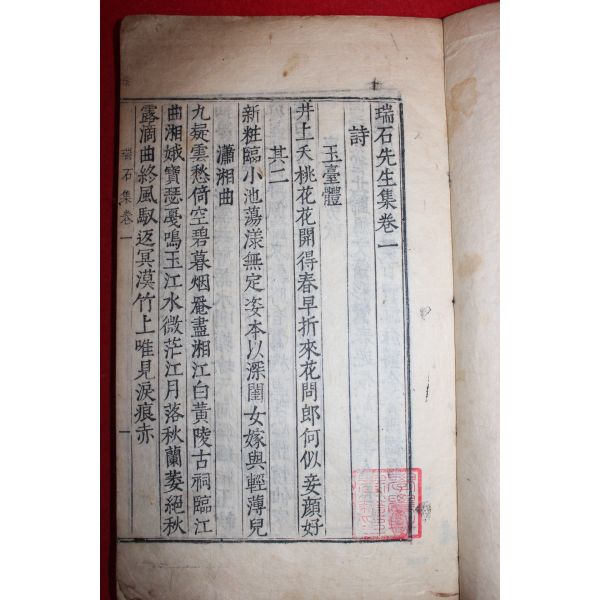 瑞石先生集卷一
詩
玉臺體
井上夭桃花花開得春早折來花問郎何似妾顏好
其二
新粧臨小池蕩漾無定姿本以深閨女嫁與輕薄兒
瀟湘曲
九疑雲愁倚空碧暮烟卷盡湘江白黃陵古祠臨江
曲湘娥寶瑟戛鳴玉江水微茫江月落秋蘭萎絕秋
露滴曲終風馭返冥漠竹上唯見淚痕赤
瑞石集卷一
一